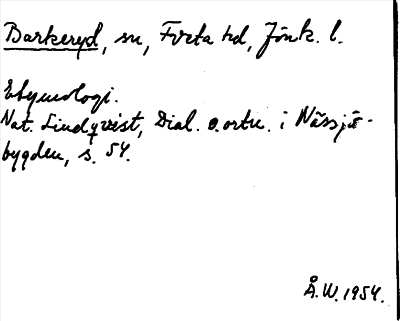 Barkeryd, sn, Tveta hd, Jönk. l.
Etymologi.
Nat. Lindqvist, Dial. o. ortn. i Nässjö-
bygden, s. 54.
Å.W. 1954.